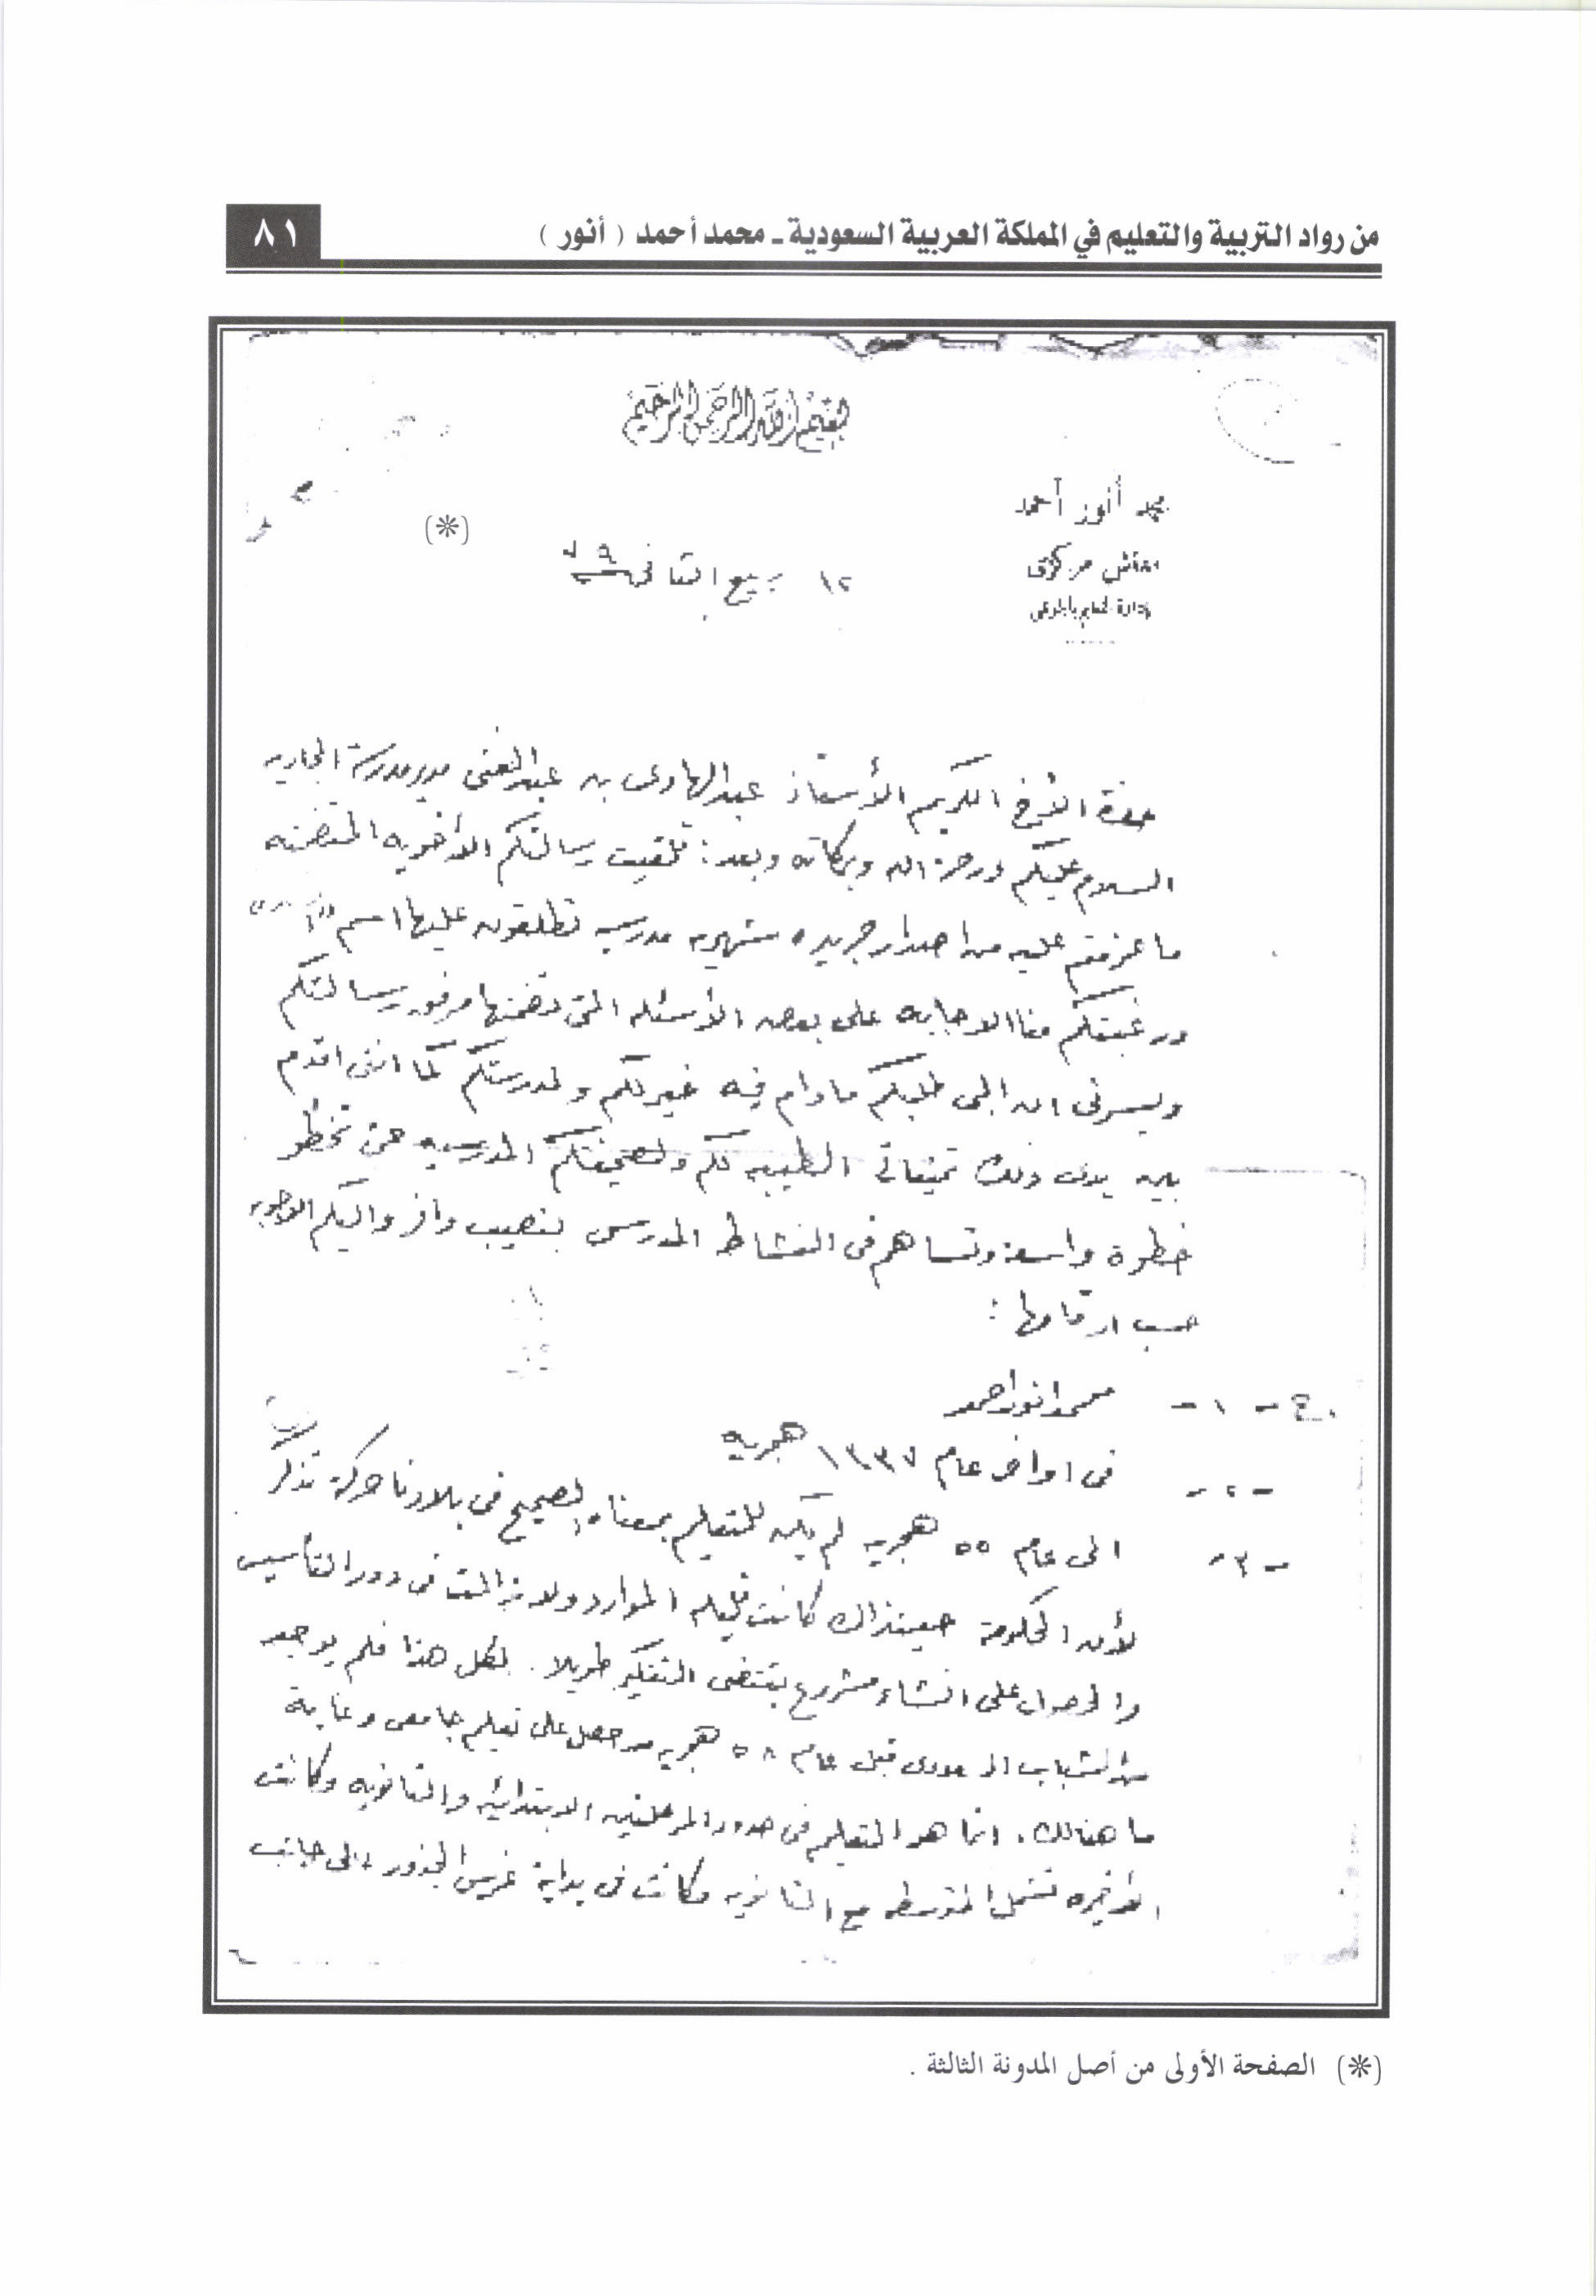 من رواد التربية والتعليم في المملكة العربية السعودية ـ محمد أحمد ( أنور )
٨١
بسم الله الرحمن الرحيم
محمد أنور أحمد
مفتش مركزى
إدارة التعليم بالمرعى
(*)
١٢ ربيع الثانى ٧٩
حضرة الأخ الكريم الأستاذ عبدالهادى بن عبدالغنى مدير مدرسة
السلام عليكم ورحمة الله وبركاته وبعد: تلقيت رسالتكم الأخويه المتضمنه
ما عزمتم عليه من اصدار جريده شهريه مدرسيه تطلقون عليها اسم
ورغبتكم منا الاجابه على بعض الأسئله التى تضمنها مرفق رسالتكم
ويسرنى ان البى طلبكم مادام فيه خير لكم ولمدرستكم كما اننى اقدم
بين يدى ذلك تمنياتى الطيبه لكم ولصحيفتكم المدرسيه حتى تخطو
خطوة واسعة وتساهم فى النشاط المدرسى بنصيب وافر واليكم الاجوبه
حسب ارقامها :
ج - ١ - محمد انور احمد
- ٢ - فى اواخر عام ١٣٣٧ هجريه
- ٣ - الى عام ٥٥ هجريه لم يكن للتعليم بمعناه الصحيح فى بلادنا حركة تذكر
لأن الحكومة حينذاك كانت قليلة الموارد ولا زالت فى دور التأسيس
والحصول على انشاء مشروع يقتضى التفكير طويلا . لكل هذا فلم يوجد
من الشباب السعودى قبل عام ٥٨ هجريه من حصل على تعليم جامعى وغاية
ما هنالك . انما هو التعليم فى حدود المرحلتين الابتدائيه والثانويه وكانت
الأخيره تشمل المتوسطه مع الثانويه وكانت فى بداية غرس الجذور الى جانب
(*) الصفحة الأولى من أصل المدونة الثالثة .